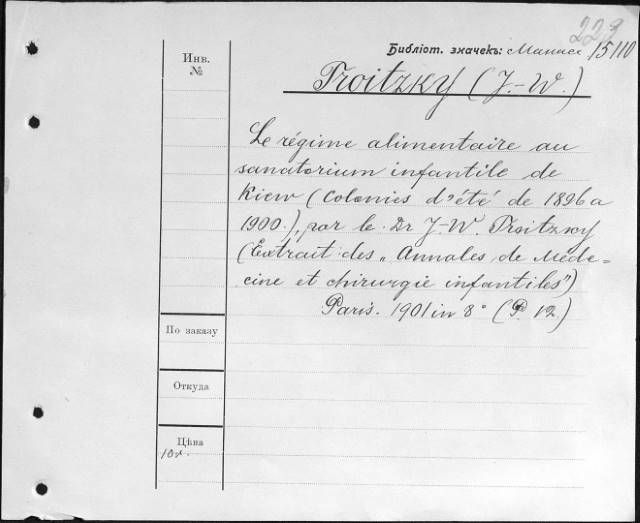 229
Библіот. значекъ: 15110
Инв.
№
Troitzky (J.-W.)
Le régime alimentaire au
sanatorium infantile de
Kiew (Colonies d'été de 1896 a
1900.), par le Dr J-W. Troitzky
(Extrait des „Annales de Méde=
cine et chirurgie infantiles")
Paris. 1901 in 8° (P. 12)
По заказу
Откуда
Цѣна